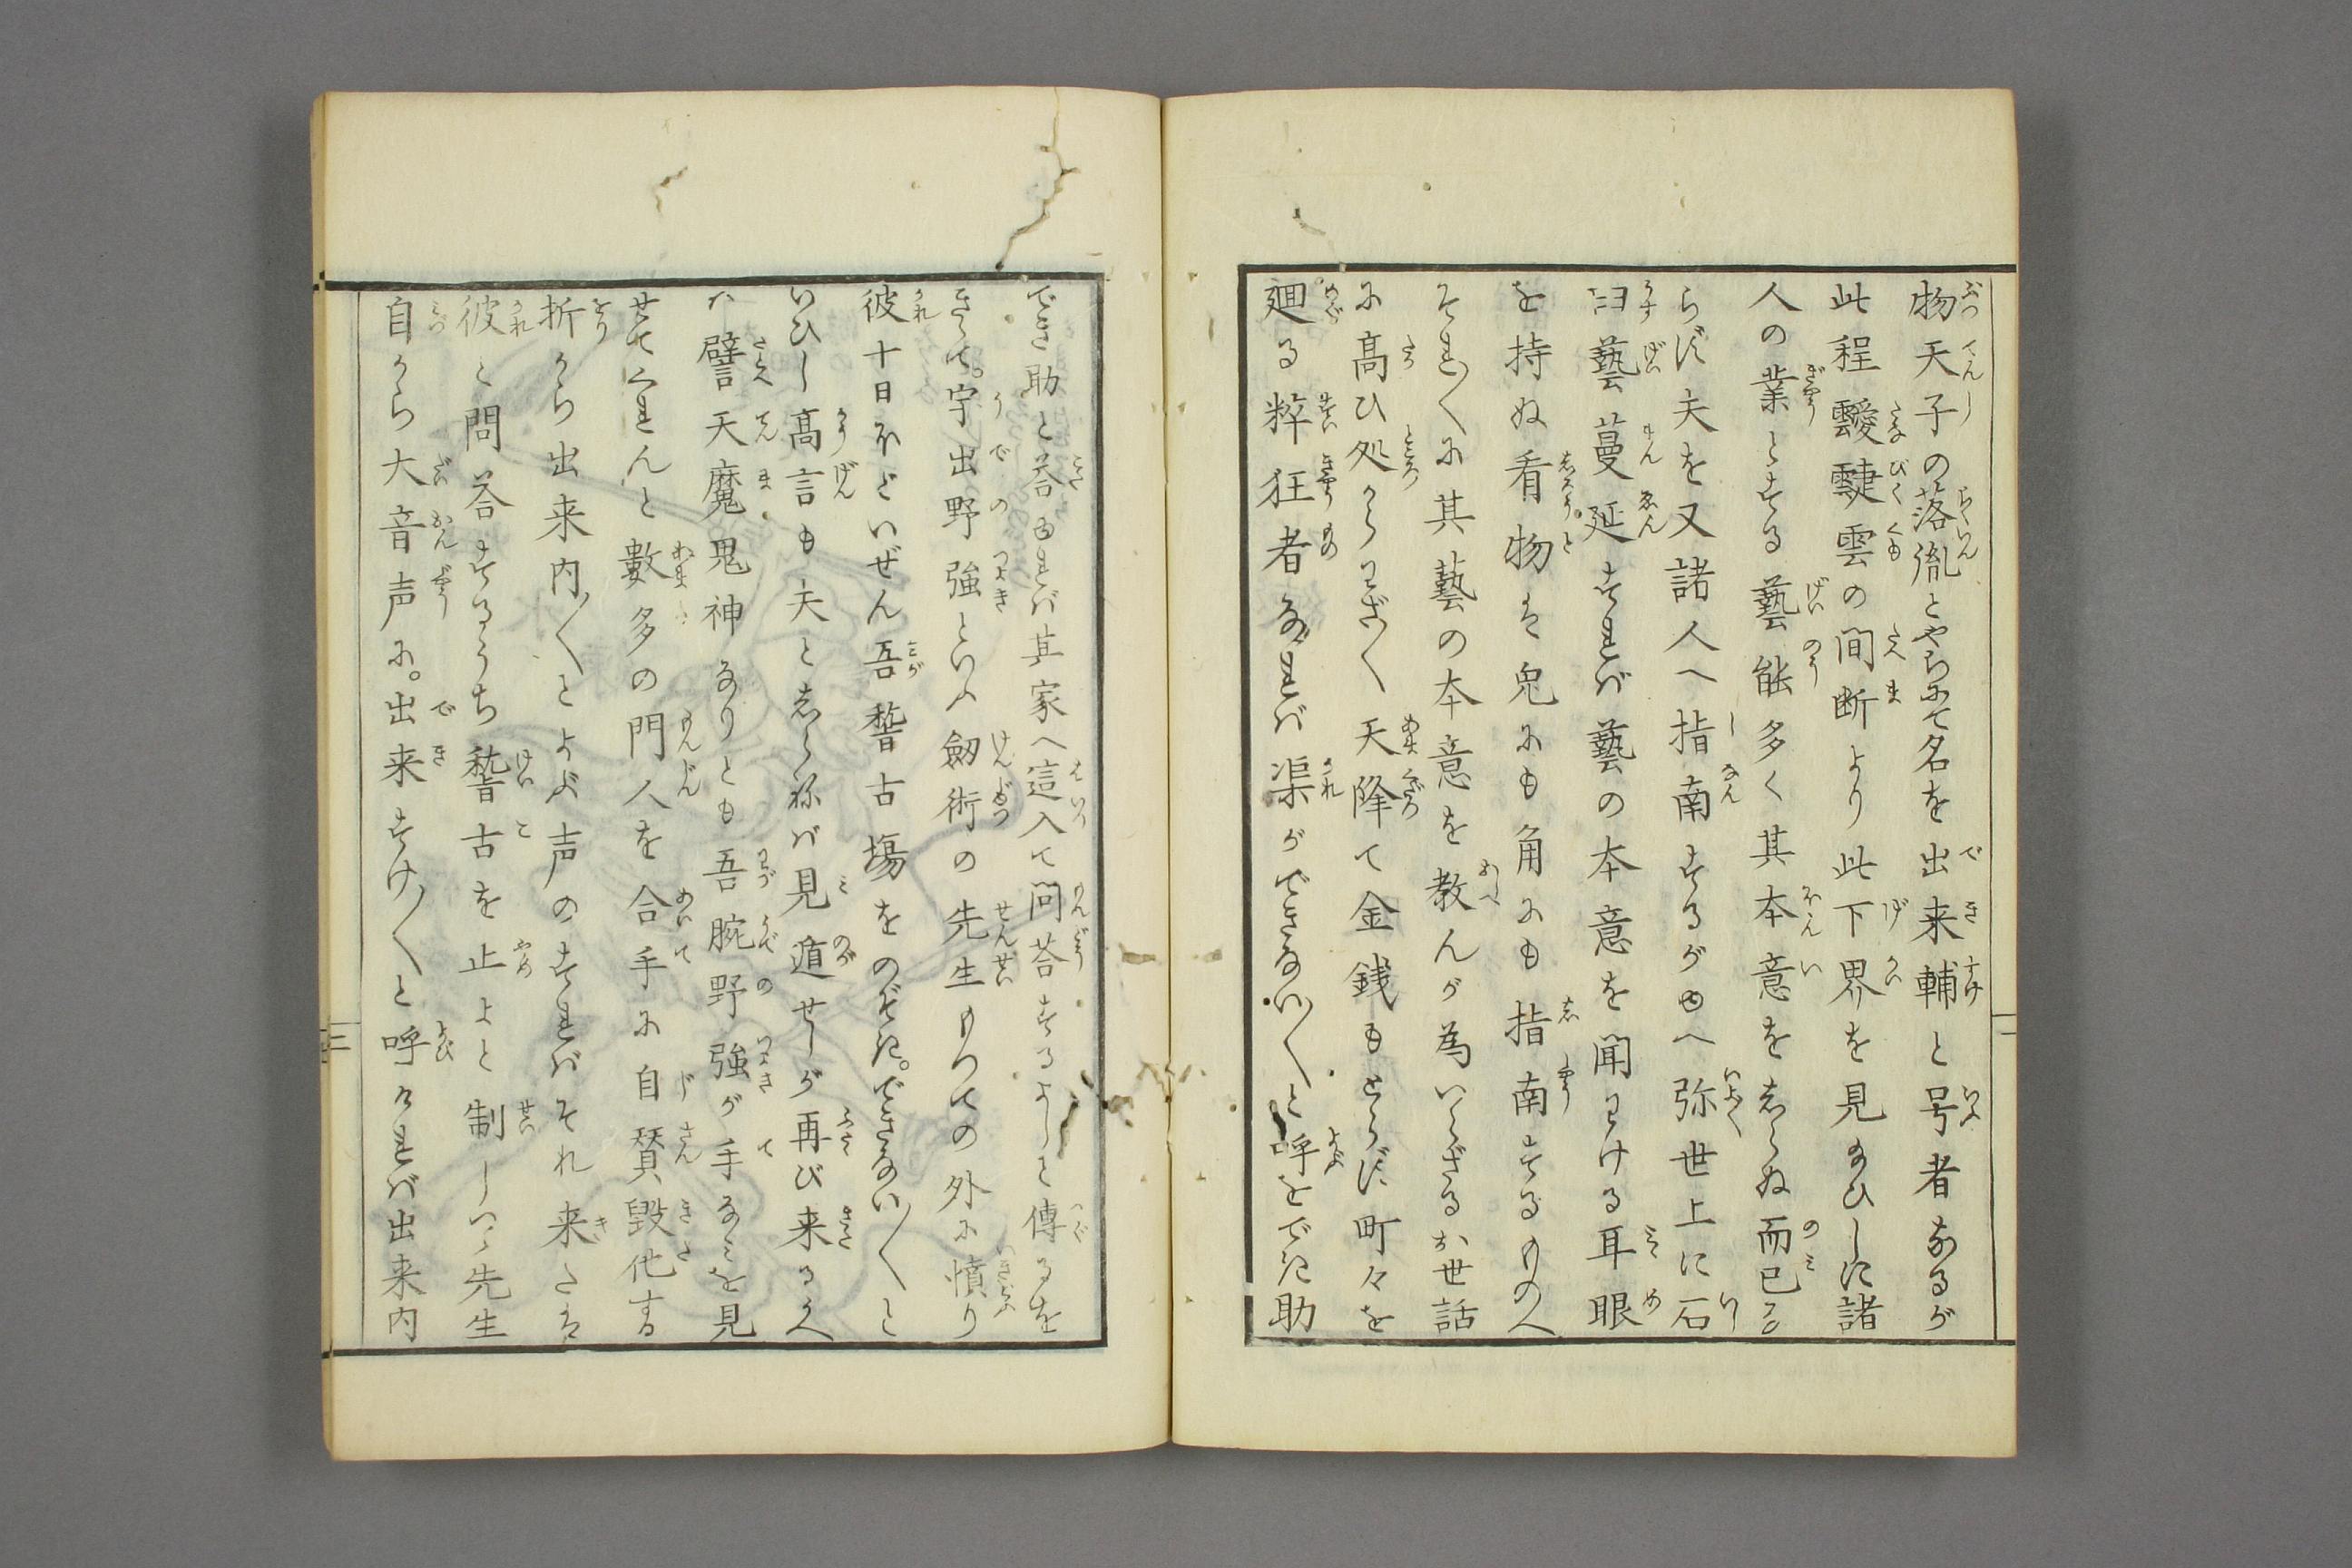 物天子の落胤とやらにて名を出来輔と号者なるが
此程靉靆雲の間断より此下界を見給ひしに諸
人の業とする藝能多く其本意をしらぬ而已な
らず夫を又諸人へ指南するがゆへ弥世上に石
臼藝蔓延すれば藝の本意を聞わける耳眼
を持ぬ看物は兎にも角にも指南するものへ
それ〳〵に其藝の本意を教んが為いらざるお世話
に高ひ処からわざ〳〵天降て金銭もとらず町々を
廻る粹狂者なれば渠ができない〳〵と呼をでき助
でき助と答ゆれば其家へ這入て問答するよしと傳るを
きゝて。宇出野強といふ劔術の先生もつての外に憤り
彼十日ほどいぜん吾稽古場をのぞき。できない〳〵と
いひし高言も夫としらねば見遁せしが再び来るうへ
は譬天魔鬼神なりとも吾腕野強が手なみを見
せてくれんと數多の門人を合手に自賛毀他する
折から出来内〳〵とよぶ声のすればそれ来たは
彼と問答するうち稽古を止よと制しつゝ先生
自から大音声に。出来すけ〳〵と呼ければ出来内
三